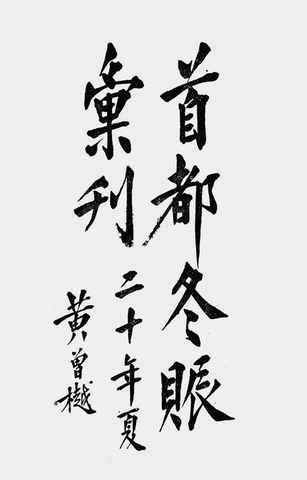 首都冬賑
彙刊
二十年夏
黄曾樾